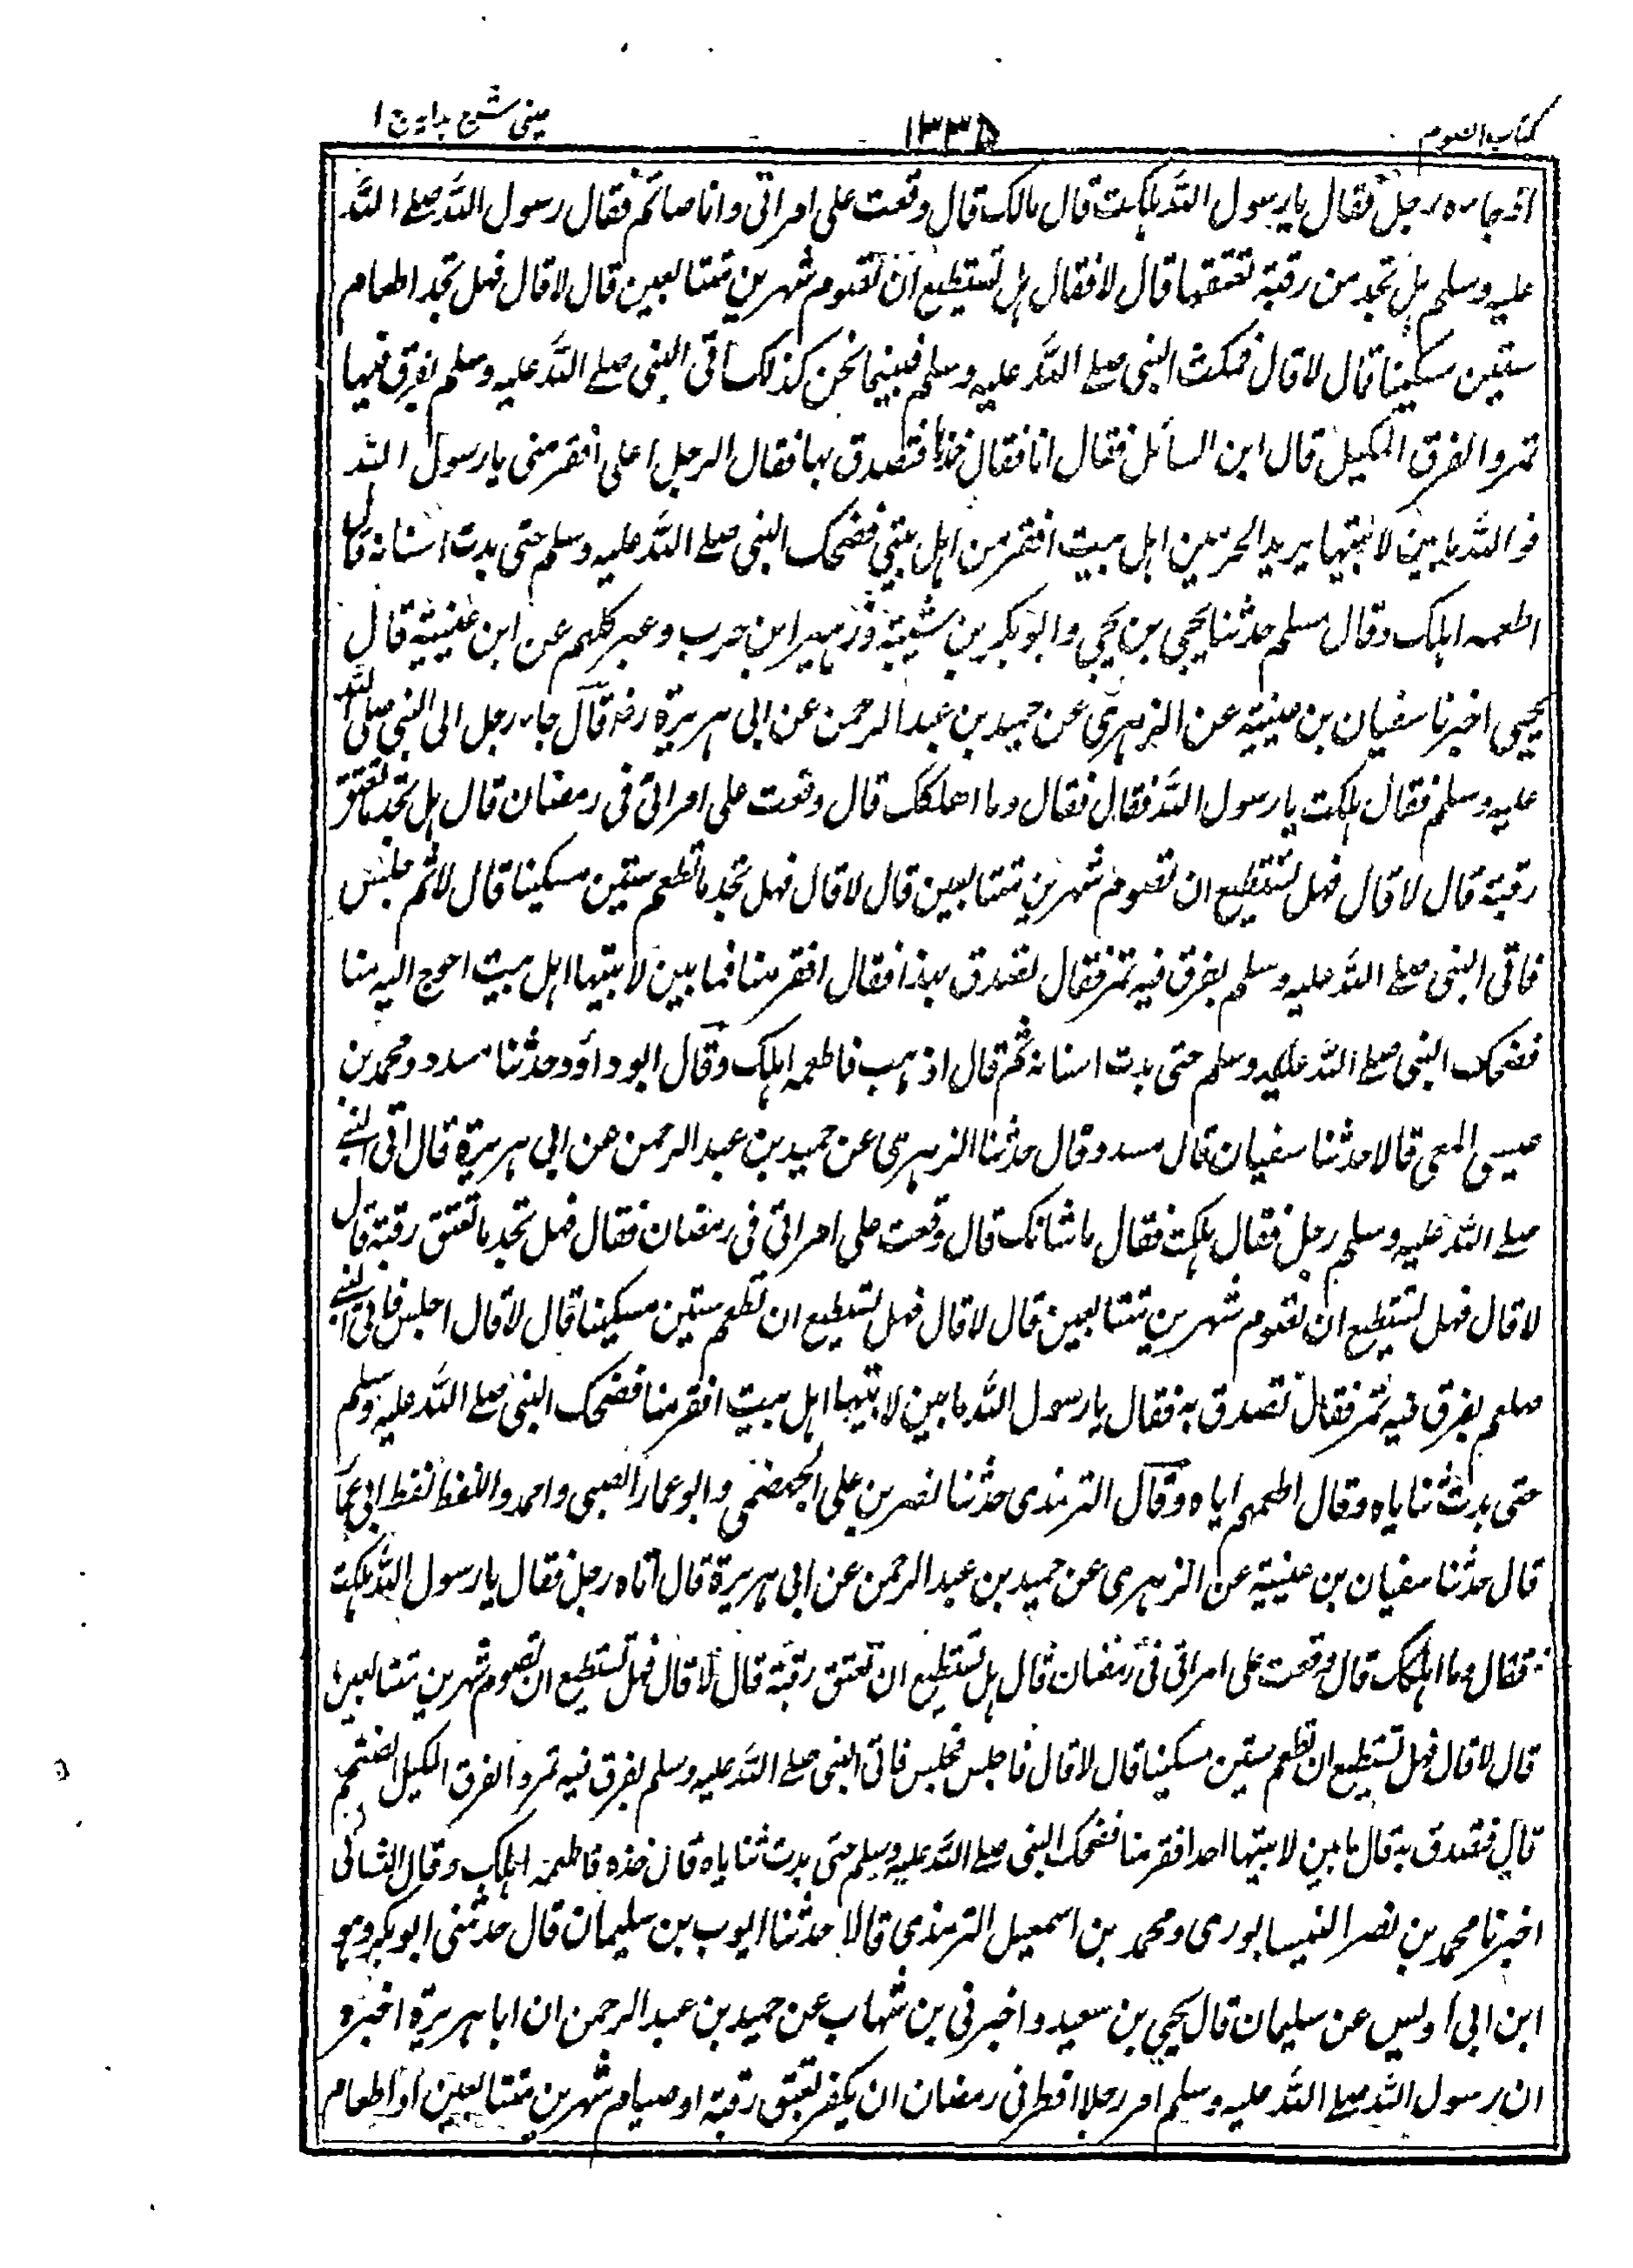 کتاب الصوم
۱۳۳۵
عینی شرح ہدایہ ج ۱
اذ جاءه رجل فقال یا رسول اللہ ہلکت قال مالک قال وقعت علی امراتی وانا صائم فقال رسول اللہ صلے اللہ
علیہ وسلم ہل تجد من رقبۃ تعتقہا قال لا فقال ہل تستطیع ان تصوم شہرین متتابعین قال لا قال فہل تجد اطعام
ستین مسکینا قال لا قال فمکث النبی صلے اللہ علیہ وسلم فبینما نحن کذلک اتی النبی صلے اللہ علیہ وسلم بفرق فیہا
تمر والفرق المکیل قال این السائل فقال انا فقال خذہا فتصدق بہا فقال الرجل اعلی افقر منی یا رسول اللہ
فواللہ ما بین لابتیہا یرید الحرتین اہل بیت افقر من اہل بیتی فضحک النبی صلے اللہ علیہ وسلم حتی بدت اسنانہ قال
اطعمہ اہلک وقال مسلم حدثنا یحیی بن یحیی وابو بکر بن شیبۃ وزہیر ابن حرب وعبر کلہم عن ابن عیینۃ قال
یحیی اخبرنا سفیان بن عیینۃ عن الزہری عن حمید بن عبد الرحمن عن ابی ہریرۃ رضہ قال جاء رجل الی النبی صلی اللہ
علیہ وسلم فقال ہلکت یا رسول اللہ فقال فقال وما اھلکک قال وقعت علی امراتی فی رمضان قال ہل تجد ما تعتق
رقبۃ قال لا قال فہل تستطیع ان تصوم شہرین متتابعین قال لا قال فہل تجد ما تطعم ستین مسکینا قال لا ثم جلس
فاتی النبی صلے اللہ علیہ وسلم بفرق فیہ تمر فقال تصدق بہذا فقال افقر منا فما بین لابتیہا اہل بیت احوج الیہ منا
فضحک النبی صلے اللہ علیہ وسلم حتی بدت اسنانہ ثم قال اذہب فاطعمہ اہلک وقال ابو داؤد حدثنا مسدد ومحمد بن
عیسی المعی قالا حدثنا سفیان قال مسدد قال حدثنا الزہری عن حمید بن عبد الرحمن عن ابی ہریرۃ قال اتی النبی
صلے اللہ علیہ وسلم رجل فقال ہلکت فقال ما شانک قال وقعت علی امراتی فی رمضان فقال فہل تجد ما تعتق رقبۃ قال
لا قال فہل تستطیع ان تصوم شہرین متتابعین قال لا قال فہل تستطیع ان تطعم ستین مسکینا قال لا قال اجلس فاتی النبی
صلعم بفرق فیہ تمر فقال تصدق بہ فقال یا رسول اللہ ما بین لابتیہا اہل بیت افقر منا فضحک النبی صلے اللہ علیہ وسلم
حتی بدت ثنایاہ وقال اطعمہم ایاہ وقال الترمذی حدثنا نصر بن علی الجہضمی وابو عمار الصبی واحمد واللفظ لفظ ابی عمار
قال حدثنا سفیان بن عیینۃ عن الزہری عن حمید بن عبد الرحمن عن ابی ہریرۃ قال اتاہ رجل فقال یا رسول اللہ ہلکت
فقال وما اہلکک قال وقعت علی امراتی فی رمضان قال ہل تستطیع ان تعتق رقبۃ قال لا قال فہل تستطیع ان تصوم شہرین متتابعین
قال لا قال فہل تستطیع ان تطعم ستین مسکینا قال لا قال فاجلس فجلس فاتی النبی صلے اللہ علیہ وسلم بفرق فیہ تمر والفرق المکیل الضخم
قال فتصدق بہ قال ما بین لابتیہا احد افقر منا فضحک النبی صلے اللہ علیہ وسلم حتی بدت ثنایاہ قال خذہ فاطعمہ اہلک وقال النسائی
اخبرنا محمد بن نصر النیسابوری ومحمد بن اسمعیل الترمذی قالا حدثنا ایوب بن سلیمان قال حدثنی ابو بکر وہو
ابن ابی اویس عن سلیمان قال یحیی بن سعید واخبرنی بن شہاب عن حمید بن عبد الرحمن ان ابا ہریرۃ اخبرہ
ان رسول اللہ صلے اللہ علیہ وسلم امر رجلا افطر فی رمضان ان یکفر بعتق رقبۃ او صیام شہرین متتابعین او اطعام